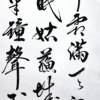 霜滿天
眠姑蘇城
半鐘聲到